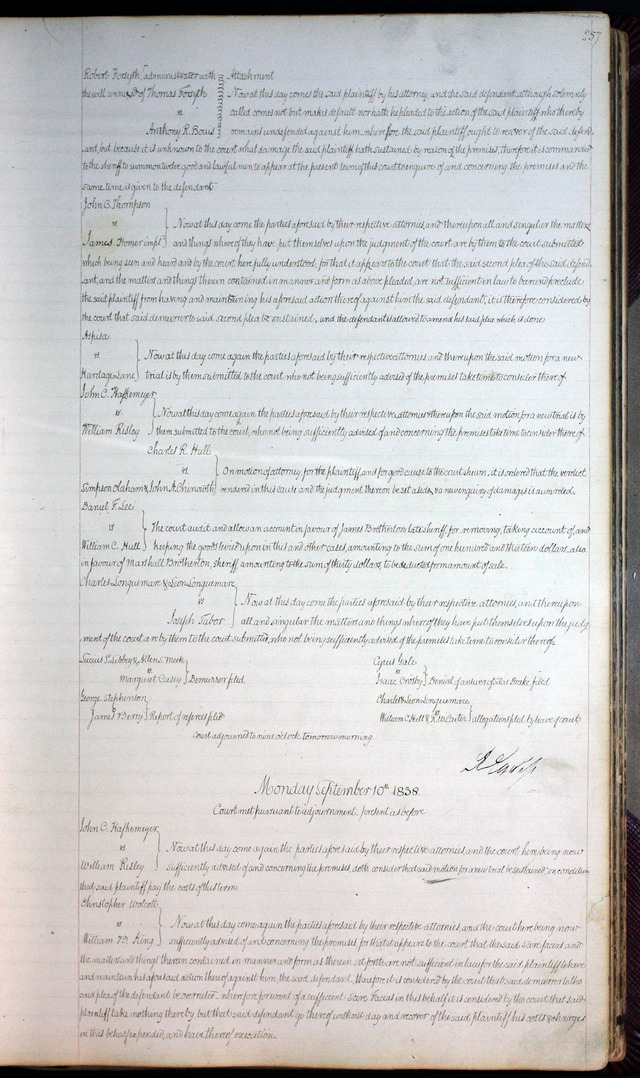 257
Robert Forsyth administrator with } Attachment
the will annexed of Thomas Forsyth } Now at this day comes the said plaintiff by his attorney, and the said defendant although solemnly
vs } called comes not but makes default nor hath he pleaded to the action of the said plaintiff who thereby
Anthony R. Bouis } remains undefended against him wherefore the said plaintiff ought to recover of the said defend
ant, but because it is unknown to the court what damage the said plaintiff hath sustained by reason of the premises, therefore it is commanded
to the sheriff to summon twelve good and lawful men to appear at the present term of this court to enquire of and concerning the premises and the
same time is given to the defendant
John C. Thompson
vs } Now at this day come the parties aforesaid by their respective attornies, and thereupon all and singular the matters
James Homer impl } and things whereof they have put themselves upon the judgment of the court are by them to the court submitted
which being seen and heard and by the court here fully understood, for that it appears to the court that the said second plea of the said defend
ant, and the matters and things therein contained in manner and form as above pleaded, are not sufficient in law to bar and preclude
the said plaintiff from having and maintaining his aforesaid action thereof against him the said defendant, it is therefore considered by
the court that said demurrer to said second plea be sustained, and the defendant is allowed to amend his said plea which is done
Aspisa
vs } Now at this day come again the parties aforesaid by their respective attornies and thereupon the said motion for a new
Hardage Lane } trial is by them submitted to the court who not being sufficiently advised of the premises take time to consider thereof
John C. Hafkemeyer
vs. } Now at this day come again the parties aforesaid by their respective attornies & thereupon the said motion for a new trial is by
William Risley } them submitted to the court, who not being sufficiently advised of and concerning the premises take time to consider thereof
Charles R. Hall
vs. } On motion of attorney, for the plaintiff and for good cause to the court shewn, it is ordered that the verdict
Simpson Oldham & John A. Chenowth } rendered in this cause and the judgment thereon be set aside, & a new enquiry of damages is awarded.
Daniel F. Lee
vs } The court audit and allow an account in favour of James Brotherton late sheriff, for removing, taking account of, and
William C. Hull } keeping the goods levied upon in this and other cases, amounting to the sum of one hundred and thirteen dollars, also
in favour of Marshall Brotherton, sheriff amounting to the sum of thirty dollars, to be deducted from amount of sale.
Charles Longuemare & Leon Longuemare
vs } Now at this day come the parties aforesaid by their respective attornies, and thereupon
Joseph Tabor } all and singular the matters and things whereof they have put themselves upon the judg
ment of the court are by them to the court submitted, who not being sufficiently advised of the premises take time to consider thereof.
Lucius P. Libbey & Allen T. Meek
vs
Margaret Casey } Demurrer filed
George Stephenson
vs
James Berry } Report of referees filed
Cyrus Gale
vs
Isaac Crosby } Denial of answer of Silas Drake filed
Charles & Leon Longuemare
vs
William C. Hull & } allegations filed by leave of court
Court adjourned to nine o'clock tomorrow morning.
Monday September 10th 1838
Court met pursuant to adjournment present as before
John C. Hafkemeyer
vs } Now at this day come again the parties aforesaid by their respective attornies, and the court here being now
William Risley } sufficiently advised of and concerning the premises, doth consider that said motion for a new trial be sustained, on condition
that said plaintiff pay the costs of this term
Christopher Wolcott
vs } Now at this day come again the parties aforesaid by their respective attornies, and the court here being now
William King } sufficiently advised of and concerning the premises, for that it appears to the court that the said scire facias and
the matters and things therein contained in manner and form as therein set forth are not sufficient in law for the said plaintiff to have
and maintain his aforesaid action thereof against him, the said defendant, therefore it is considered by the court that said demurrer to the
said plea of the defendant be overruled wherefore for want of a sufficient scire facias in this behalf it is considered by the court that said
plaintiff take nothing thereby but that said defendant go thereof without day and recover of the said plaintiff his costs & charges
in this behalf expended, and have thereof execution.